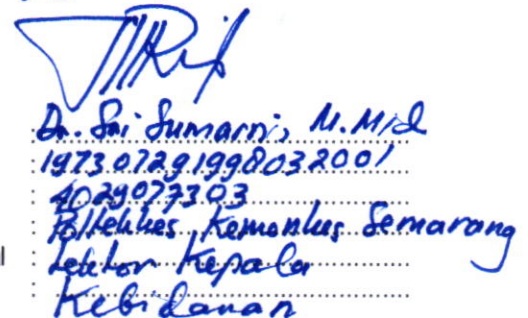 : Dr. Sri Sumarni, M.Mid
: 197307291998032001
: 4029077303
: Poltekkes Kemenkes Semarang
: Lektor Kepala
: Kebidanan